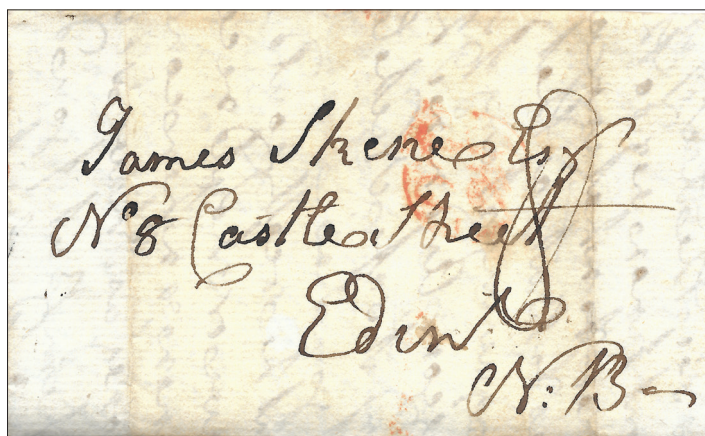 James Skene Esqr
No 8 Castle Street
Edinr
N: B